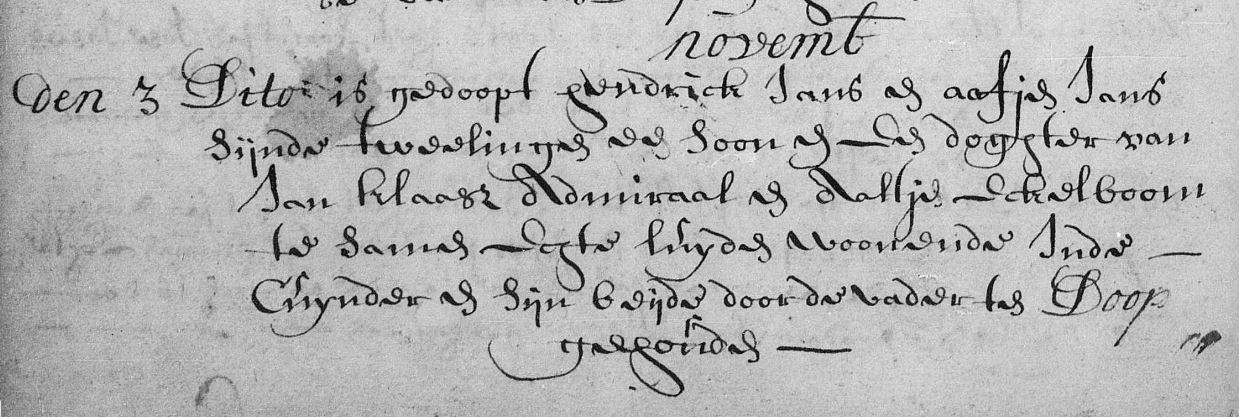 novemb
den 3 Dito is gedoopt hendrick Jans en aefjen Jans
sijnde tweelingen een soon en Een doghter van
Jan klaasz Admiraal en Aaltje Eckelboom
te samen Egte luyden woonende Inde —
Cuynder en sijn beijde door de vader ten Doop
gehouden —